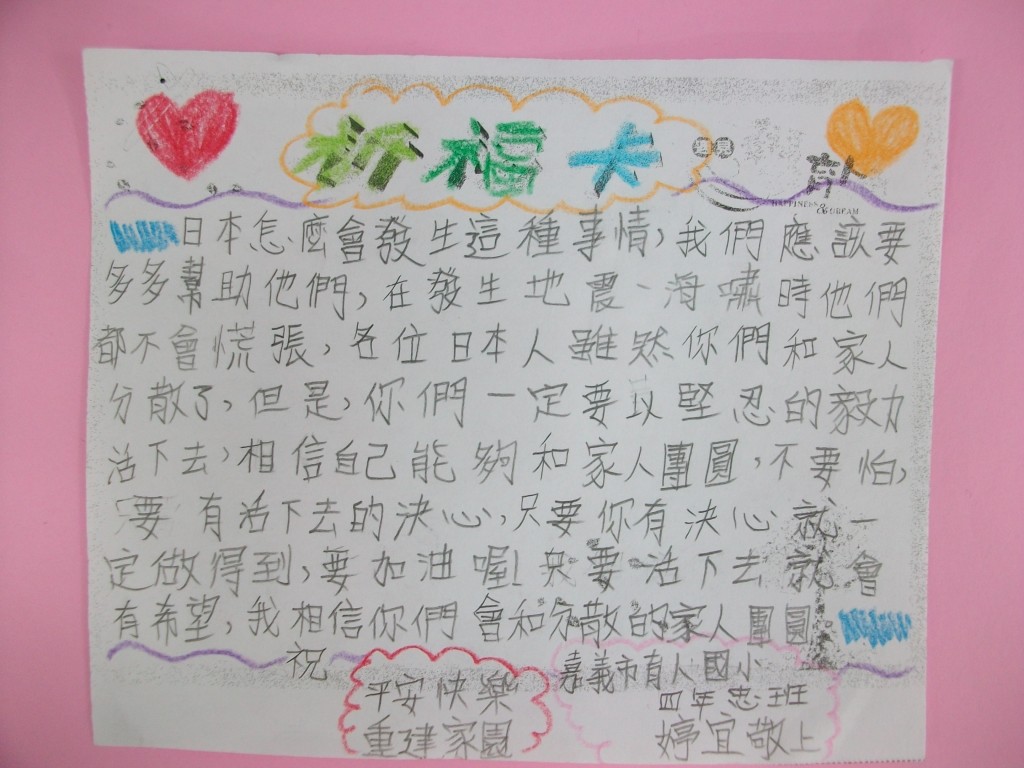 祈福卡
遇見
HAPPINESS
日本怎麼會發生這種事情,我們應該要
多多幫助他們,在發生地震、海嘯時他們
都不會慌張,各位日本人雖然你們和家人
分散了,但是,你們一定要以堅忍的毅力
活下去,相信自己能夠和家人團圓,不要怕,
要有活下去的決心,只要你有決心就一
定做得到,要加油喔!只要活下去就會
有希望,我相信你們會和分散的家人團圓
祝
平安快樂
重建家園
嘉義市有人國小
四年忠班
婷宜敬上